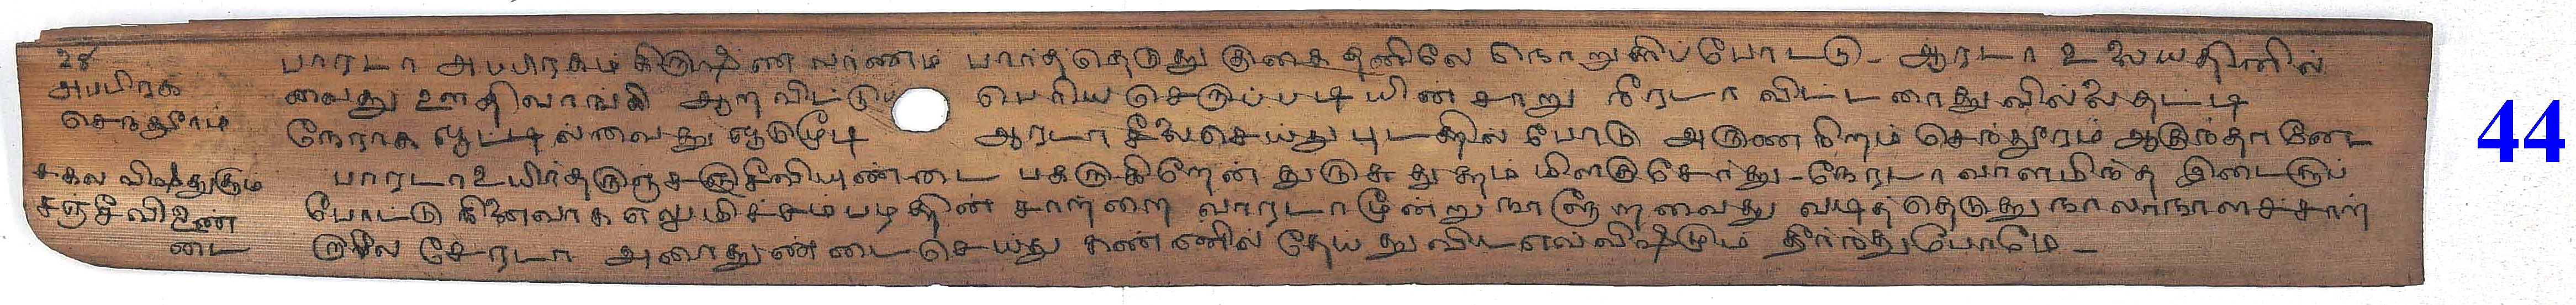 28
அப்பிரக
செந்தூரம்
பாரடா அப்பிரகம் கிருஷ்ண வர்ணம் பார்த்தெடுத்து குகைதனிலே நொறுக்கிப்போட்டு - ஆரடா உலையதினில்
வைத்து ஊதிவாங்கி ஆறவிட்டு பெரிய செருப்படியின் சாறு நீரடா விட்டரைத்து வில்லை தட்டி
நேராக ஓட்டில் வைத்து ஓடுமூடி ஆரடா சீலைசெய்து புடத்தில் போடு அருண நிறம் செந்தூரம் ஆகுந்தானே
சகல விஷத்துக்கும்
சஞ்சீவி உண்
டை
பாரடா உயிர்தருஞ் சஞ்சீவியுண்டை பகருகிறேன் துருசு துத்தம் மிளகு சேர்த்து - நேரடா வாளமிந்த இடைக்குப்
போட்டு நினைவாக எலுமிச்சம் பழத்தின் சாற்றை வாரடா மூன்று நாளூற வைத்து வடித்தெடுத்து நாலாநாளச்சாற்
றில் சேரடா அரைத்துண்டைசெய்து கண்ணில் தேய்த்துவிட எல்விஷமும் தீர்ந்துபோமே -
44